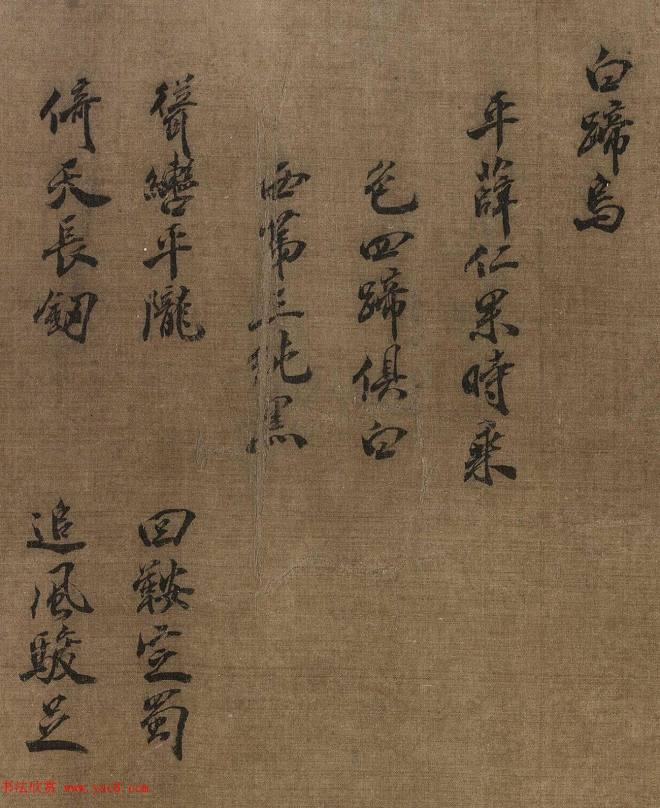 白蹄烏
西第三純黑
色四蹄俱白
平薛仁果時乘
倚天長劍
追風駿足
聳轡平隴
回鞍定蜀
书法欣赏 www.yac8.com